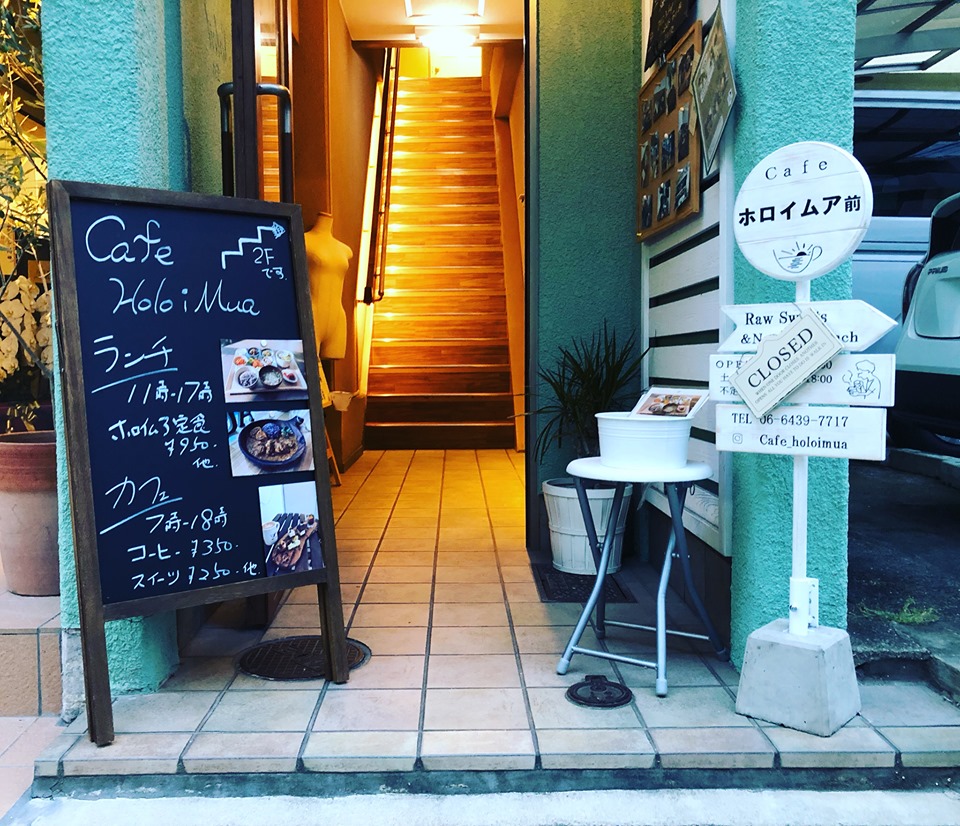 Cafe
2F
です
Holo i Mua
ランチ
11時-17時
ホロイムア定食
¥950.
他.
カフェ
7時-18時
コーヒー ¥350.
スイーツ ¥250.他
Cafe
ホロイムア前
Raw Sweets
CLOSED
OPE
18:00
TEL 06-6439-7717
Cafe_holoimua
PRIUS